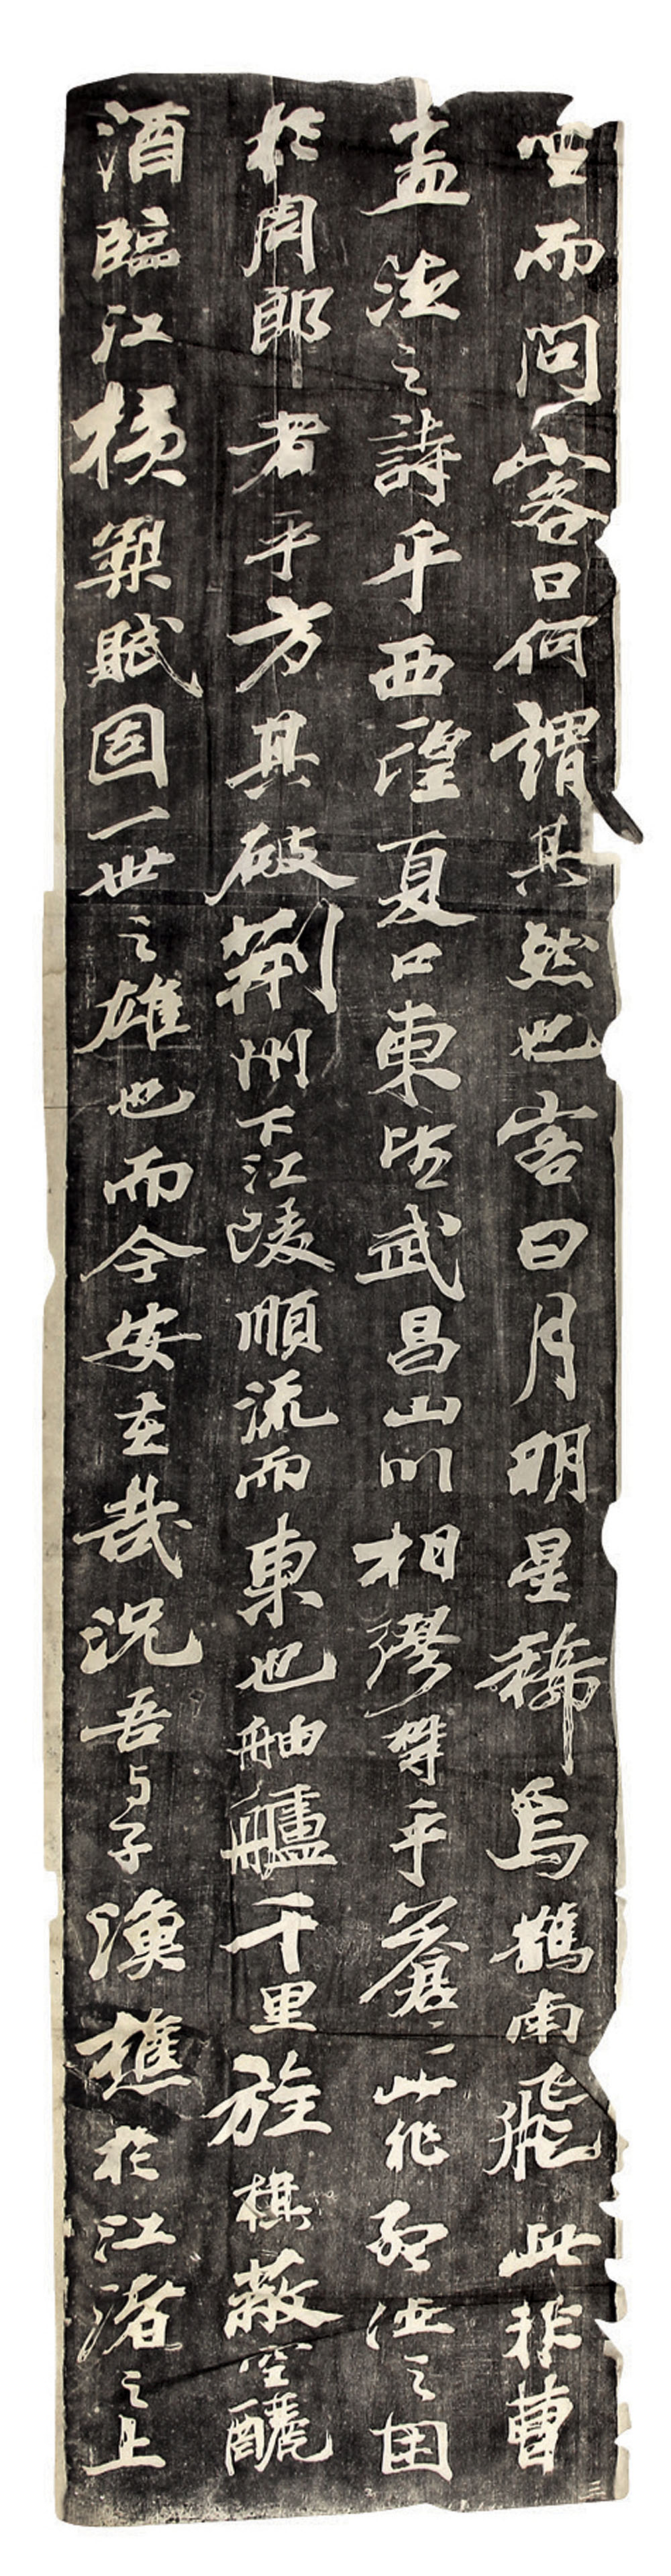 坐而問客曰何謂其然也客曰月明星稀烏鵲南飛此非曹
孟德之詩乎西望夏口東望武昌山川相繆欝乎蒼〻此非孟德之困
於周郎者乎方其破荆州下江陵順流而東也舳艫千里旌旗蔽空釃
酒臨江横槊賦固一世之雄也而今安在哉況吾与子漁樵於江渚之上
三